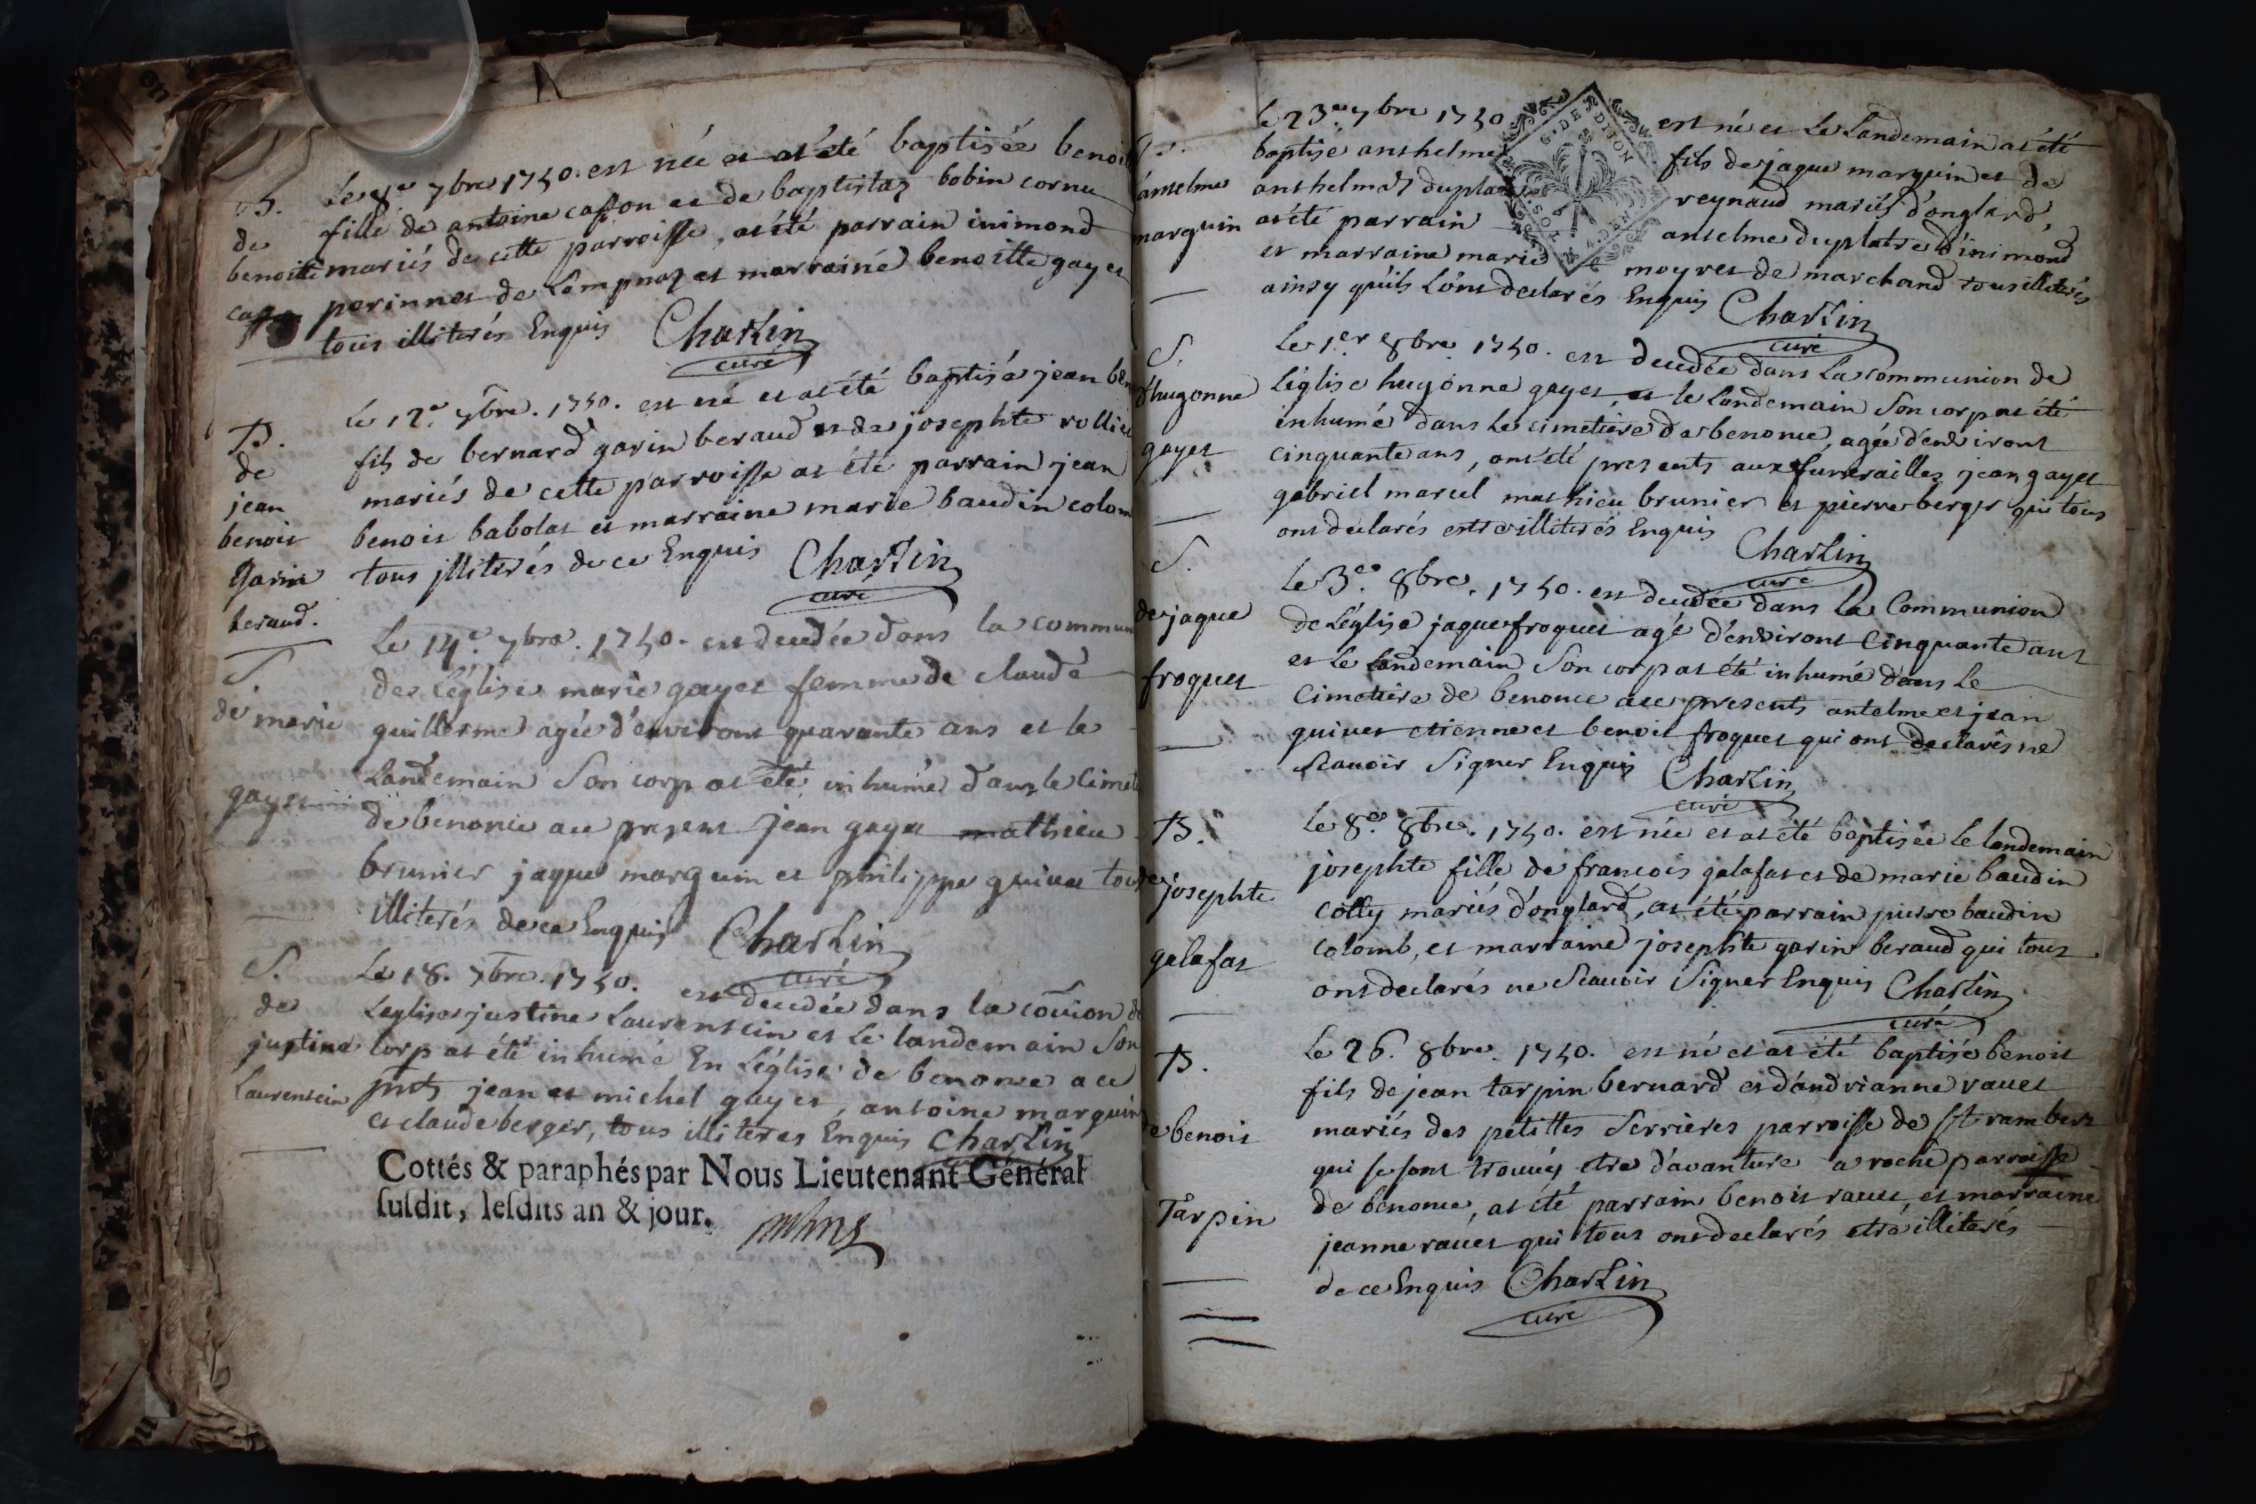 B.
de
benoitte
Le 8.e 7bre 1750. est née et at été baptisée benoit
fille de antoine caffon et de baptistaz bobin cornu
mariés de cette parroisse, at été parrain inimond
perinnet de Lempnaz et marrainé benoitte gayet
tous illiterés Enquis Charlin
curé
B.
de
jean
benoit
Garin
beraud.
Le 12.e 7bre. 1750. est né et at été baptisé jean ben
fils de bernard garin beraud et de josephte rollie
mariés de cette parroisse at été parrain jean
benoit babolat et marraine marie baudin colom
tous illiterés de ce Enquis Charlin
curé
S
de marie
gayet
Le 14.e 7bre. 1750. est decedée dans la commun
de L'église marie gayet femme de claude
guillerme agée d'environt quarante ans et le
Landemain Son corp at été inhumé dans le Cimet
de benonce a ce present jean gayet mathieu
brunier jaque marguin et philippe guinet tous
illiterés de ce Enquis Charlin
curé
S.
de
justine
Laurencin
Le 18. 7bre. 1750. est decedée dans la coûion d
L'eglise justine Laurencin et Le landemain Son
corp at été inhumé En L'église de benonce a ce
pnts jean et michel gayet, antoine marguin
et claude berger, tous illiteres Enquis Charlin
Cottés & paraphés par Nous Lieutenant Général
susdit, lesdits an & jour.
anselme
marguin
G. DE DIJON
le 23.e 7bre 1750 est né et Le Landemain at été
baptisé anthelme fils de jaque marguin et de
anthelmaz duplatre reynaud mariés d'onglard,
at été parrain anselme duplatre d'inimond
et marraine marie moyret de marchand tous illiterés
ainsy qu'ils L'ont declarés Enquis Charlin
curé
S.
d'hugonne
gayet
Le 1.er 8bre 1750. est decedée dans La communion de
L'église hugonne gayet, et le Landemain Son corp at été
inhumé dans Le cimetiere de benonce, agée d'environt
cinquante ans, ont été presents aux funerailles jean gayet
gabriel marcel mathieu brunier et pierre berger qui tous
ont declarés estre illiterés Enquis Charlin
curé
S.
de jaque
froquet
Le 3.e 8bre. 1750. est decedée dans La Communion
de L'église jaque froquet agé d'environt Cinquante ans
et le Landemain Son corp at été inhumé dans Le
Cimetiere de benonce a ce presents antelme et jean
guinet etienne et benoit froquet qui ont declarés ne
Scauoir Signer Enquis Charlin
curé
B.
de josephte
galafat
Le 8.e 8bre. 1750. est née et at été baptisée le landemain
josephte fille de francois galafat et de marie baudin
colly mariés d'onglard, at été parrain pierre baudin
colomb, et marraine josephte garin beraud qui tous
ont declarés ne Scauoir Signer Enquis Charlin
curé
B.
de benoit
Tarpin
Le 26. 8bre. 1750. est né et at été baptisé benoit
fils de jean tarpin bernard et d'andrianne rauet
mariés des petittes Serrieres parroisse de St rambert
qui se sont trouués etre d'avanture a roche parroisse
de benonce, at été parrain benoit rauet et marraine
jeanne rauet qui tous ont declarés etre illiterés
de ce Enquis Charlin
curé